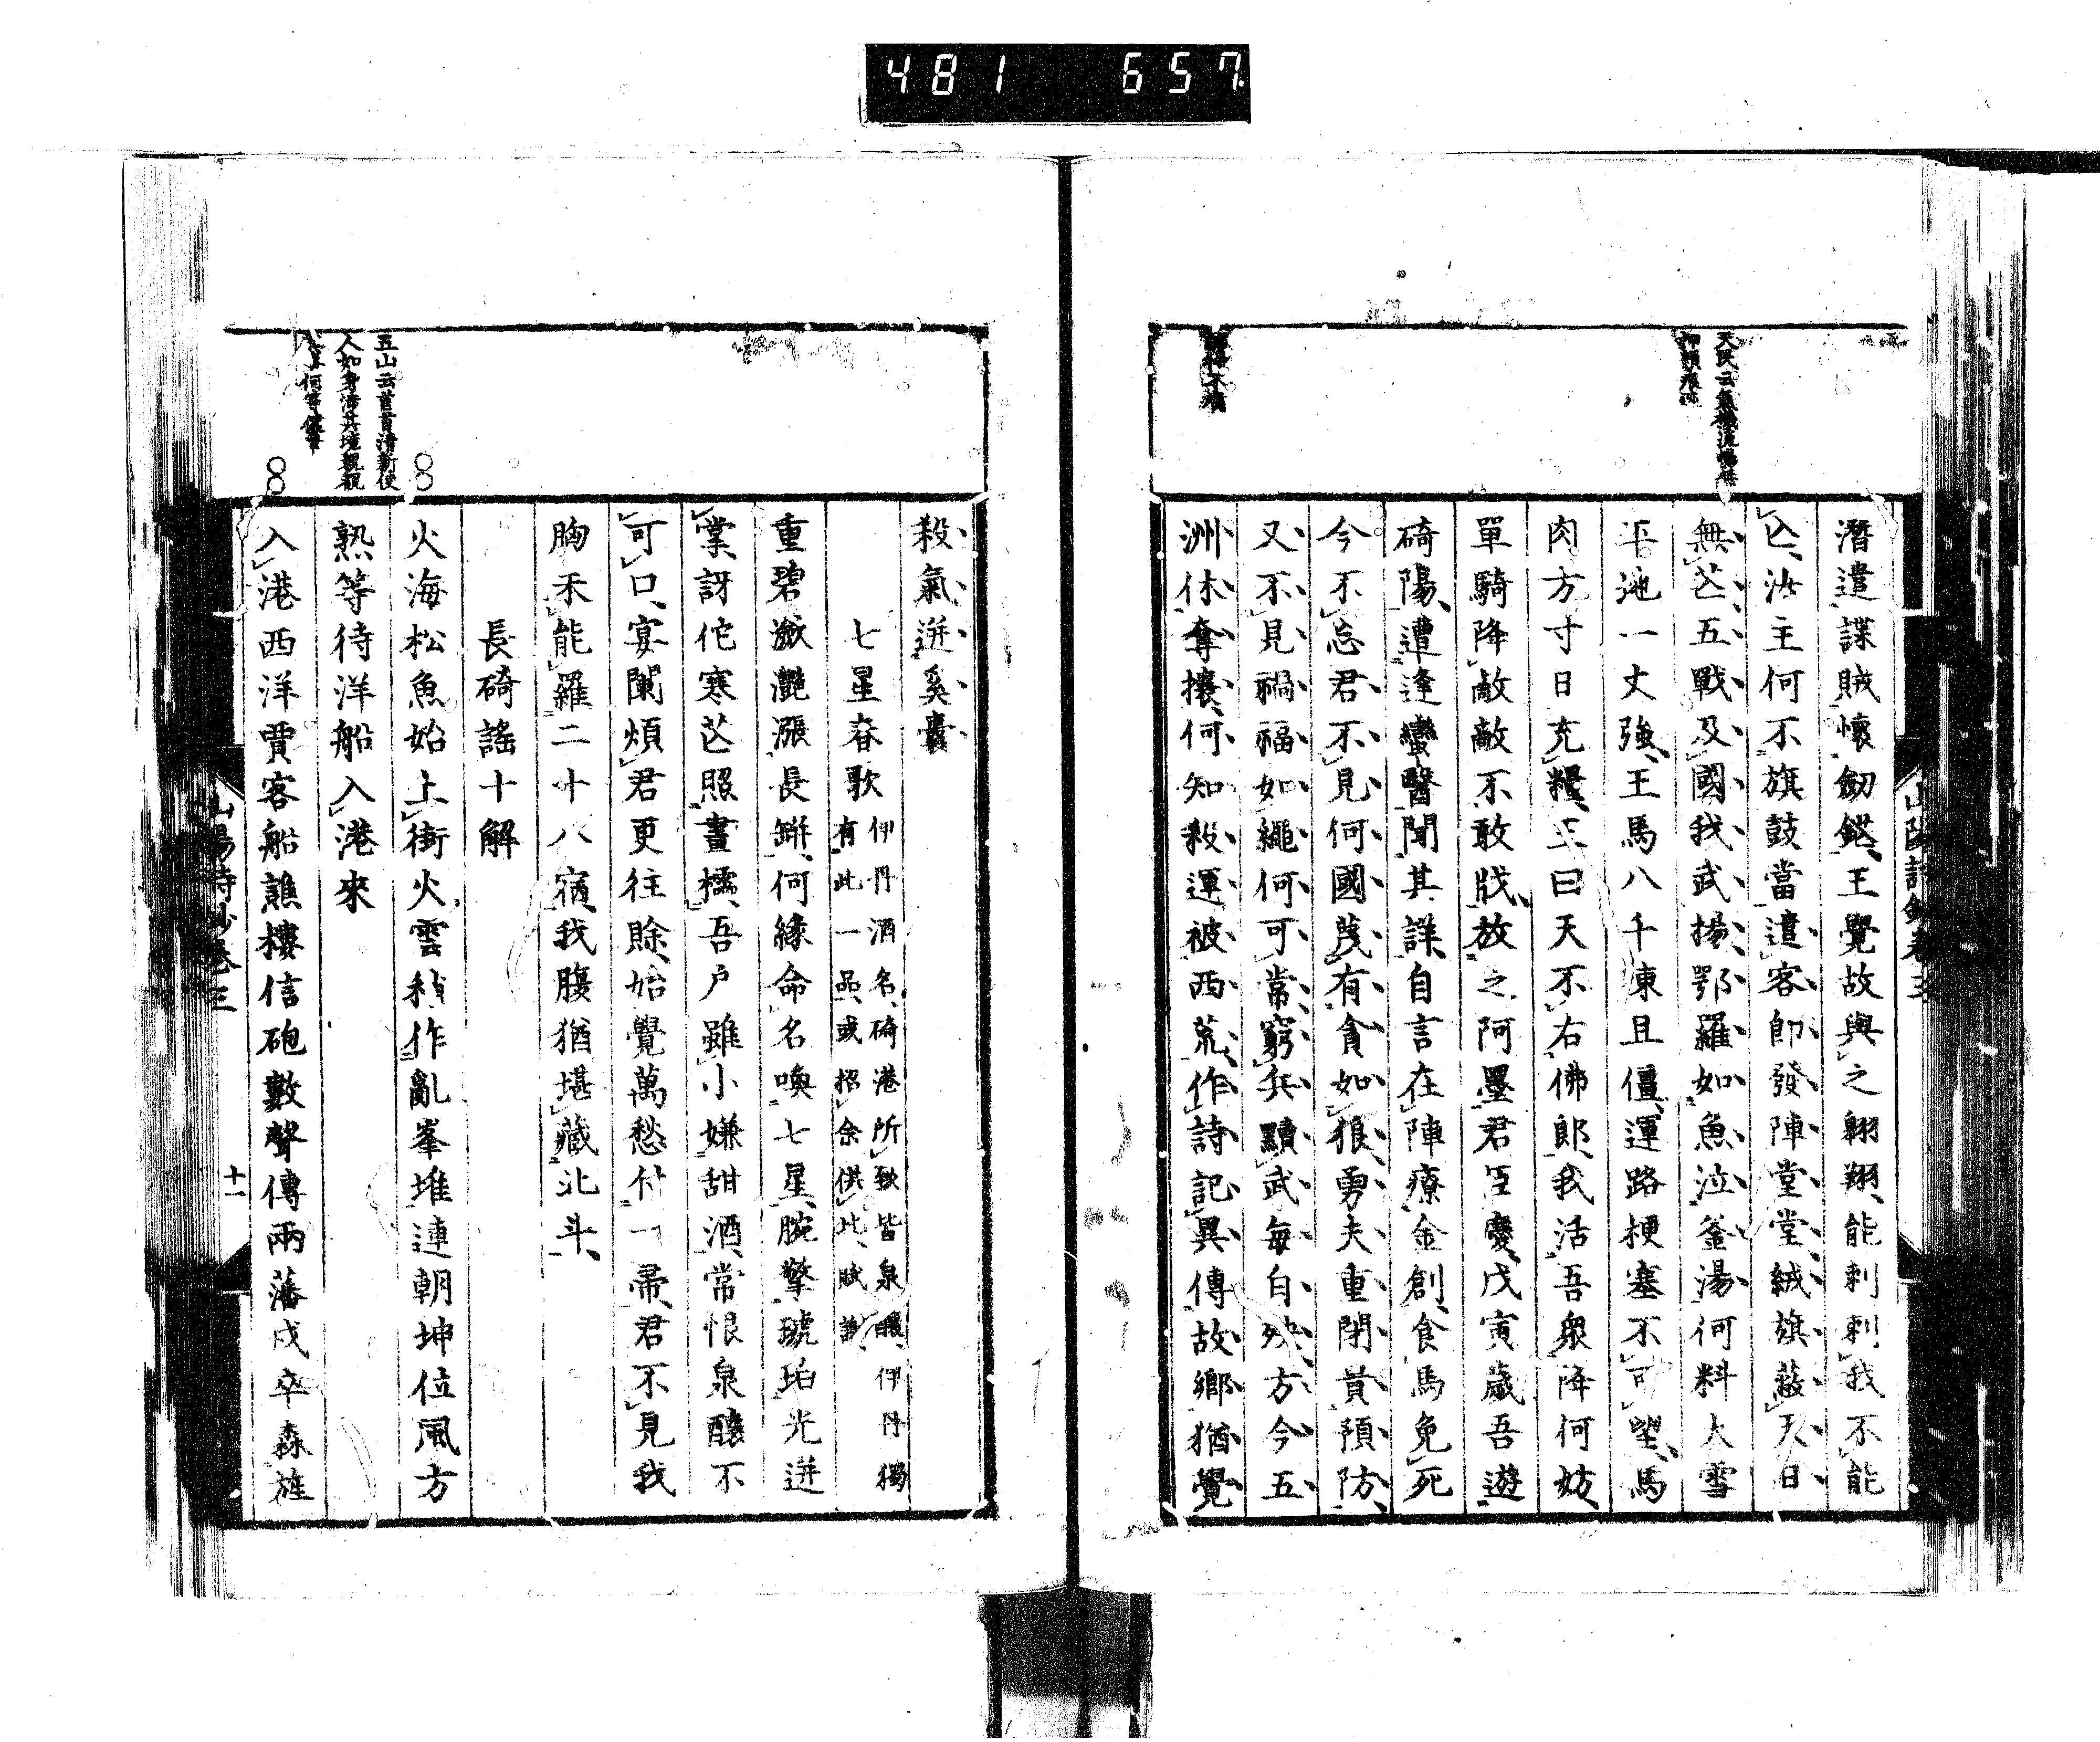 481 657
天民云氣機流暢無
押韻痕迹
潛遣諜賊懷劒鋩王覺故與之翺翔能刺刺我不能
亾汝主何不旗鼓當遣客即發陣堂堂絨旗蔽天日
無芒五戰及國我武揚鄂羅如魚泣釜湯何料大雪
平地一丈強王馬八千凍且僵運路梗塞不可望馬
肉方寸日充糧王曰天不右佛郎我活吾衆降何妨
單騎降敵敵不敢戕放之阿墨君臣慶戊寅歲吾遊
碕陽遭逢蠻醫聞其詳自言在陣療金創食馬免死
今不忘君不見何國蔑有貪如狼勇夫重閉貴預防
又不見禍福如繩何可常窮兵黷武每自殃方今五
洲休奪攘何知殺運被西荒作詩記異傳故鄉猶覺
山陽詩鈔卷三
殺氣迸奚囊
七星春歌
伊丹酒名碕港所致皆泉釀伊丹獨
有此一品或招余供此賦謝
重碧瀲灩漲長缾何緣命名喚七星腕擎琥珀光迸
掌訝佗寒芒照畫櫺吾戶雖小嫌甜酒常恨泉釀不
可口宴闌煩君更往賒始覺萬愁付一帚君不見我
胸不能羅二十八宿我腹猶堪藏北斗
長碕謠十解
火海松魚始上街火雲秋作亂峯堆連朝坤位風方
熟等待洋船入港來
入港西洋賈客船譙樓信砲數聲傳兩藩戍卒森旌
五山云首首清新使
人如身涉其境親觀
山陽詩鈔卷三
十一